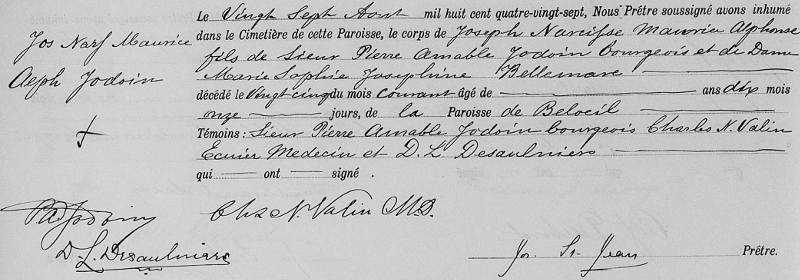 Jos Narf Maurice
Alph Jodoin
Le Vingt Sept Aout mil huit cent quatre-vingt-sept, Nous Prêtre soussigné avons inhumé
dans le Cimetière de cette Paroisse, le corps de Joseph Narcisse Maurice Alphonse
fils de Sieur Pierre Amable Jodoin bourgeois et de Dame
Marie Sophie Josephine Bellemare
décédé le Vingt cinq du mois courant âgé de ans dix mois
onze jours, de la Paroisse de Beloeil
Témoins : Sieur Pierre Amable Jodoin bourgeois Charles N. Valin
Ecuier Medecin et D. L. Desaulniers
qui ont signé .
P A Jodoin
Chs N. Valin M.D.
D. L. Desaulniers
Jos. St Jean Prêtre.